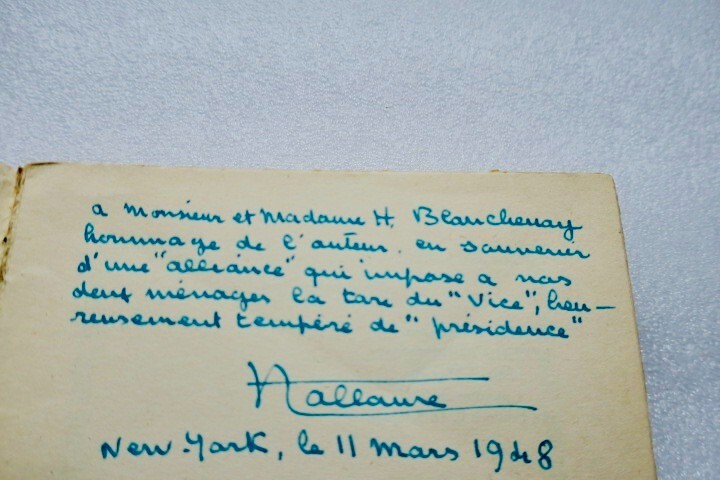 a Monsieur et Madame H. Blanchenay
hommage de l'auteur. en souvenir
d'une "alliance" qui impose a nos
deux ménages la tare du "Vice", heu-
reusement tempéré de "présidence"
New-York, le 11 Mars 1948